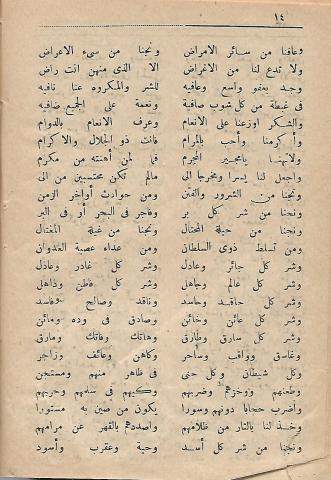 ١٤
وعافنا من سائر الامراض ونجنا من سىء الاعراض
ولا تدع لنا من الاغراض الا الذى منهن انت راض
وجد بعفو واسع وعافيه للشر والمكروه عنا نافيه
فى غبطة من كل شوب صافية ونعمة على الجميع ضافيه
والشكر اوزعنا على الانعام وعرف الانعام بالدوام
وأكرمنا وأحب بالمرام فانت ذو الجلال والاكرام
ولاتهنا يامجير المجرم فما لمن أهنته من مكرم
واجعل لنا يسرا ومخرجا الى مالم نكن محتسبين من الى
ونجنا من الشرور والفتن ومن حوادث أواخر الزمن
ونجنا من شر كل بر وفاجر فى البحر أو فى البر
ونجنا من حيلة المحتال ونجنا من غيلة المغتال
ومن تسلط ذوى السلطان ومن عداء عصبة العدوان
وشر كل جائر وعادل وشر كل غادر وعاذل
وشر كل عالم وجاهل وشر كل فاطن وذاهل
وشر كل حاقد وحاسد وناقد وصالح وفاسد
وشر كل عائن وخائن وصادق فى وده ومائن
وشر كل سارق وطارق وهاتك وفاتك ومارق
وغاسق وواقب وساحر وكاهن وعائف وزاجر
وكل شيطان وكل جنى فى ظاهر منهم ومستجن
وطعنهم ووخزهم وضربهم وكيدهم فى سلمهم وحربهم
وأضرب حجابا دونهم وسورا يكون من صين به مستورا
وخذ لنا بالثار من ظلامهم واصددهم بالقهر عن مرامهم
ونجنا من شر كل أسد وحية وعقرب وأسود